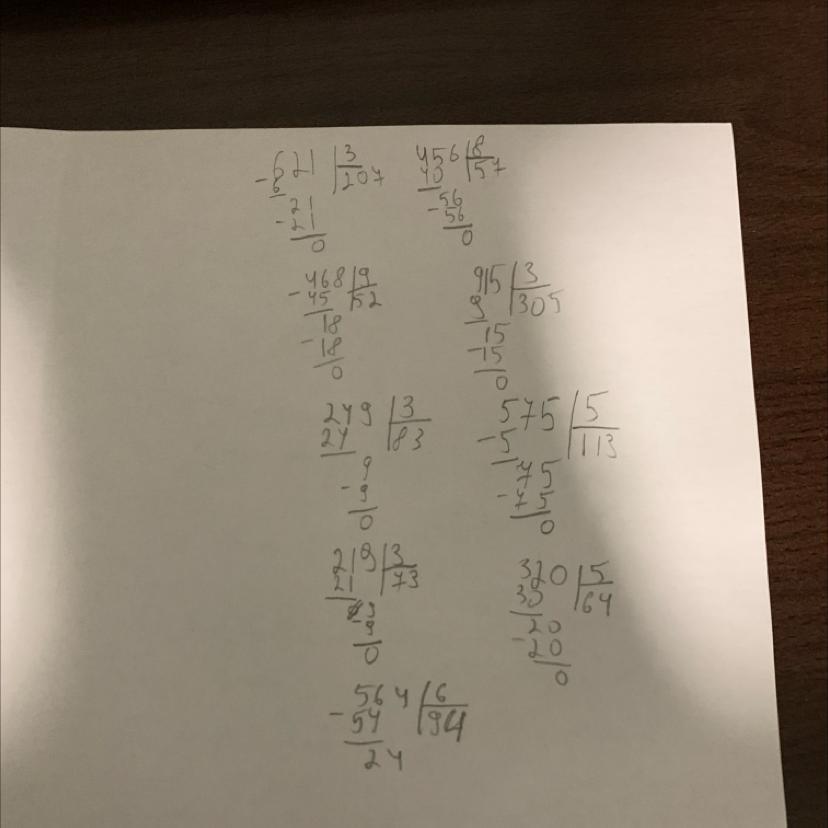 -621 |3 456 |8
6 207 40 57
21 -56
-21 56
0 0
-468 |9 915 |3
45 52 9 305
18 15
-18 -15
0 0
249 |3 575 |5
24 83 -5 113
9 75
-9 -75
0 0
219 |3 320 |5
21 73 30 64
9 20
-9 -20
0 0
-564 |6
54 94
24